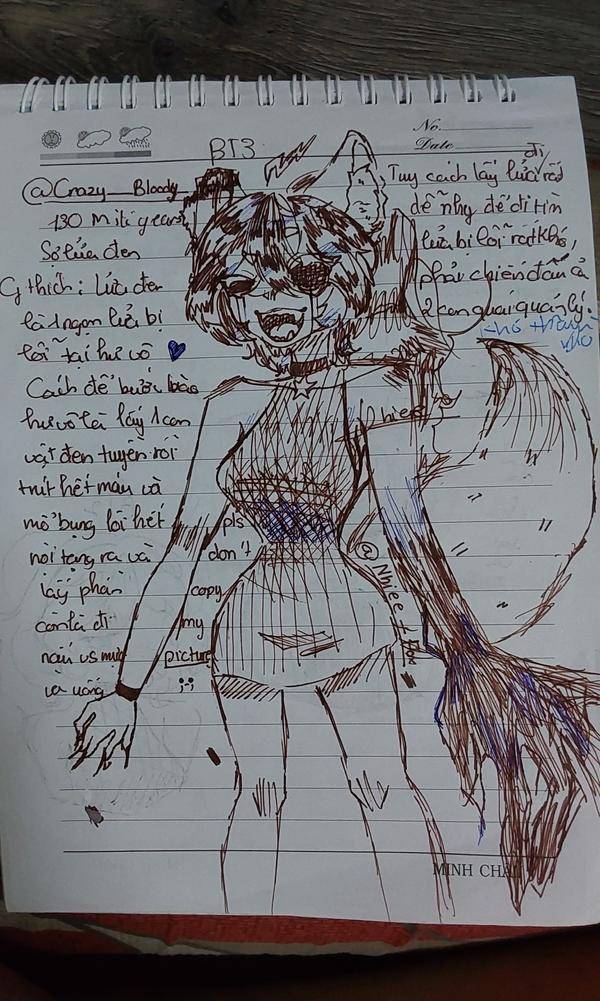 No.
Date
BT3
@Crazy_Bloody
130 Mili years
Sở lửa đen
thích: Lửa đen
là 1 ngọn lửa bị
lỗi tại hư vô
Cách để bước vào
hư vô là lấy 1 con
vật đen tuyền rồi
trút hết máu và
mổ bụng lôi hết
nội tạng ra và
lấy phần
còn lại đi
nấu vs
và uống
Tuy cách lấy lửa rất
dễ nhg để đi tìn
lửa bị lỗi rất khó,
phải chiến đấu cả
2 con quái quá lý.
pls
don't
copy
my
picture
;;
@Nhiee_Fox
MINH CHÂU